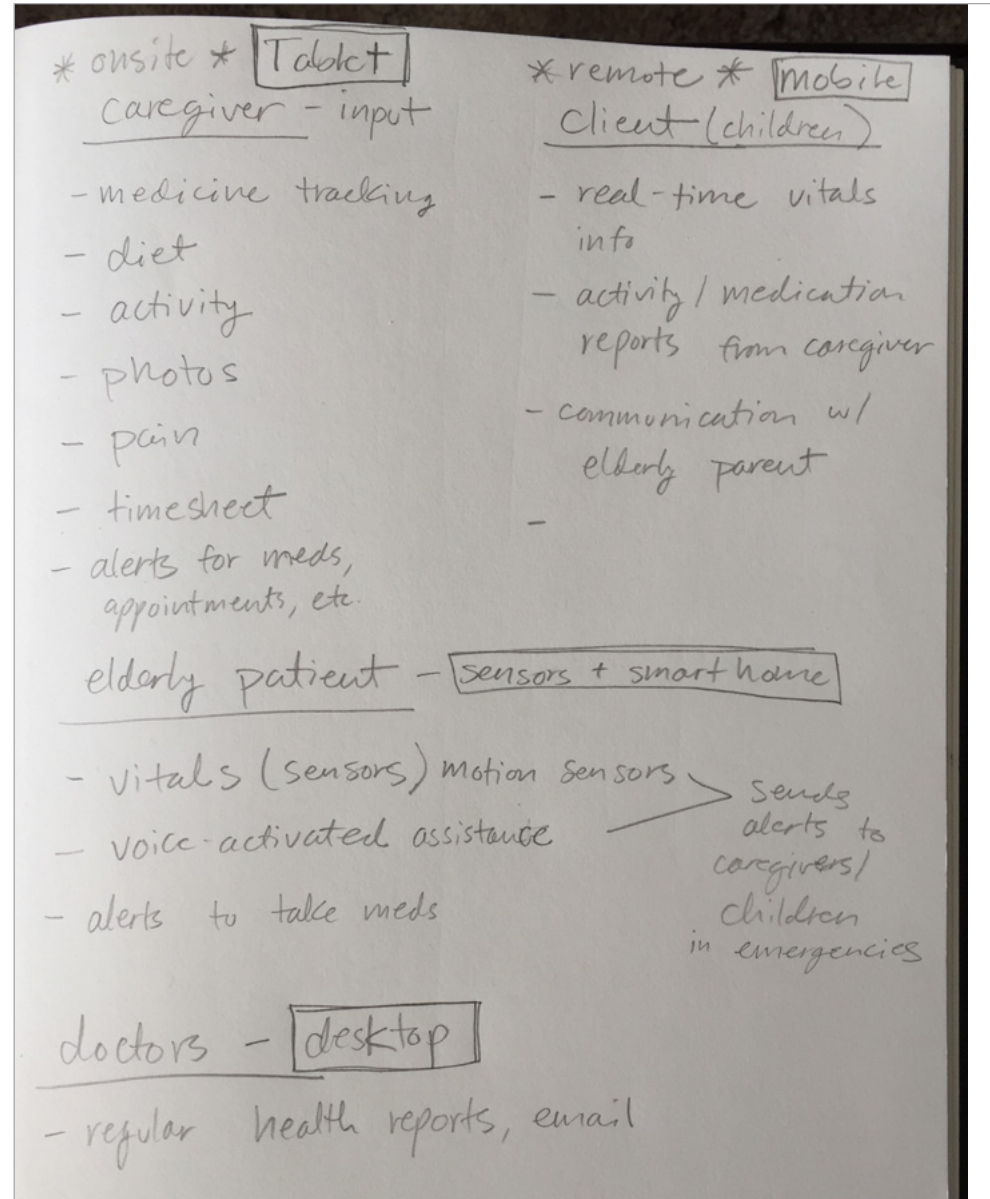 * onsite * Tablet
caregiver - input
- medicine tracking
- diet
- activity
- photos
- pain
- timesheet
- alerts for meds,
appointments, etc.
* remote * mobile
client (children)
- real-time vitals
info
- activity / medication
reports from caregiver
- communication w/
elderly parent
-
elderly patient - sensors + smart home
- vitals (sensors) motion sensors
- voice-activated assistance
- alerts to take meds
sends
alerts to
caregivers/
children
in emergencies
doctors - desktop
- regular health reports, email